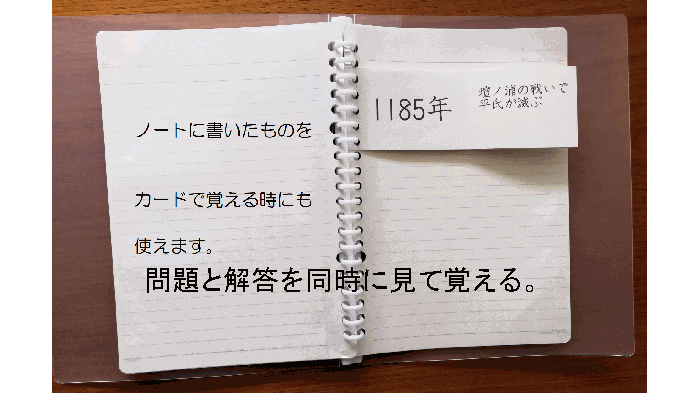 ノートに書いたものを
カードで覚える時にも
使えます。
1185年
壇ノ浦の戦いで
平氏が滅ぶ
問題と解答を同時に見て覚える。